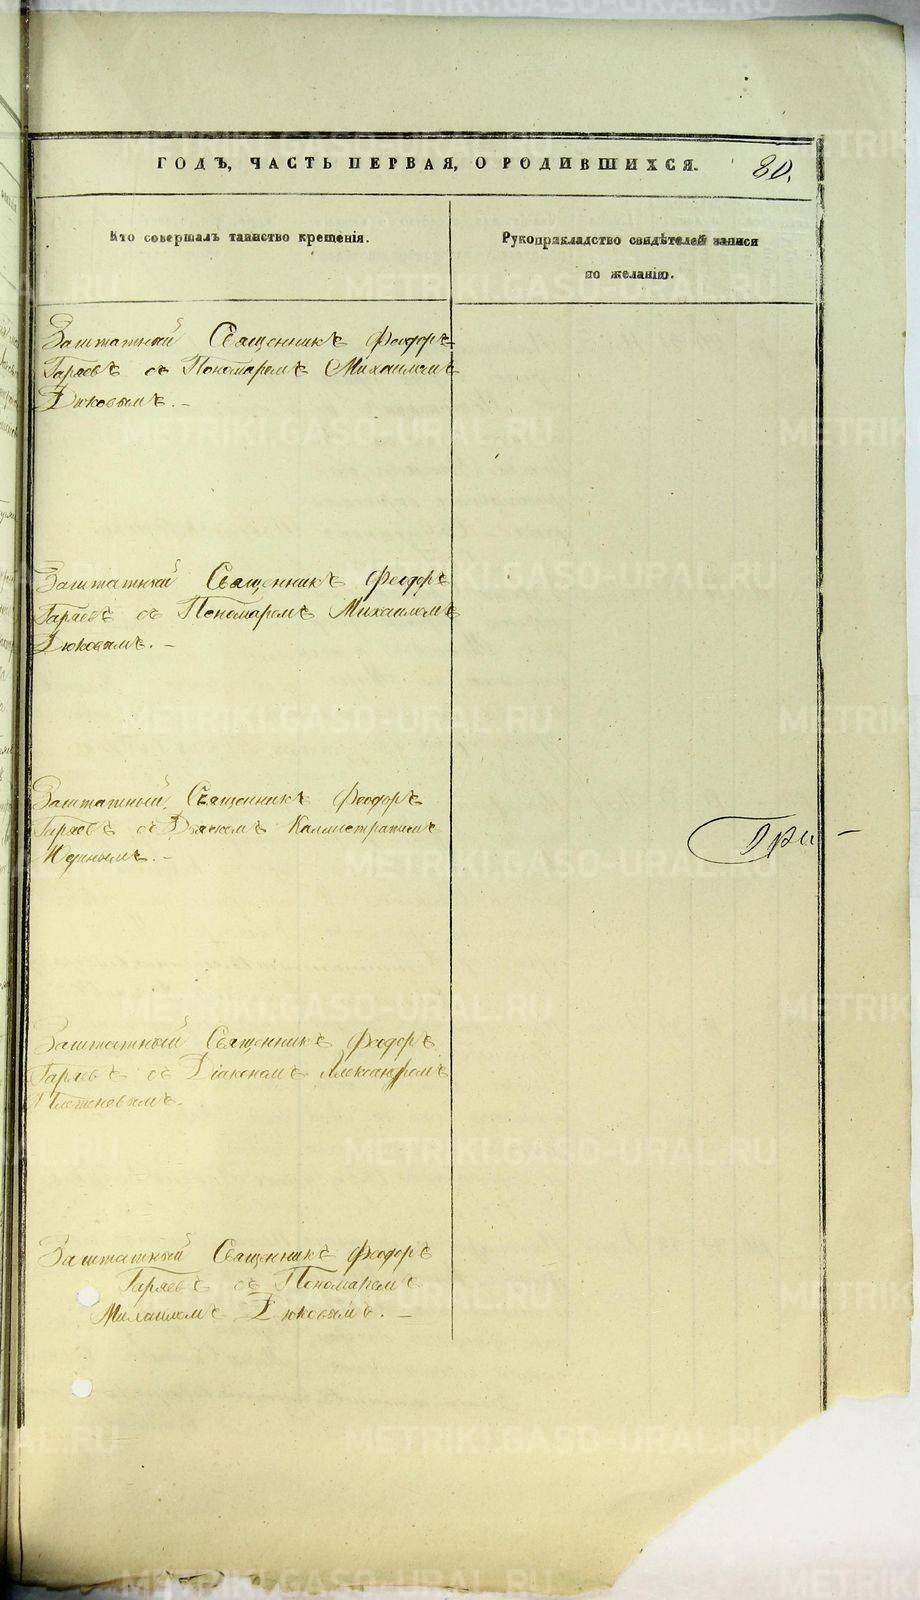 ГОДЪ, ЧАСТЬ ПЕРВАЯ, О РОДИВШИХСЯ. 80.
Кто совершалъ таинство крещенія.
Рукоприкладство свидѣтелей записи
по желанію.
Заштатный Священникъ Феодоръ
Гаряевъ съ Пономаремъ Михаиломъ
Дюковымъ. –
Заштатный Священникъ Феодоръ
Гаряевъ съ Пономаремъ Михаиломъ
Дюковымъ. –
Заштатный Священникъ Феодоръ
Гаряевъ съ Дьячкомъ Каллистратомъ
Заштатный Священникъ Феодоръ
Гаряевъ съ Діакономъ Александромъ
Плетеневымъ.
Заштатный Священникъ Феодоръ
Гаряевъ съ Пономаремъ
Михаиломъ Дюковымъ. –
METRIKI.GASO-URAL.RU